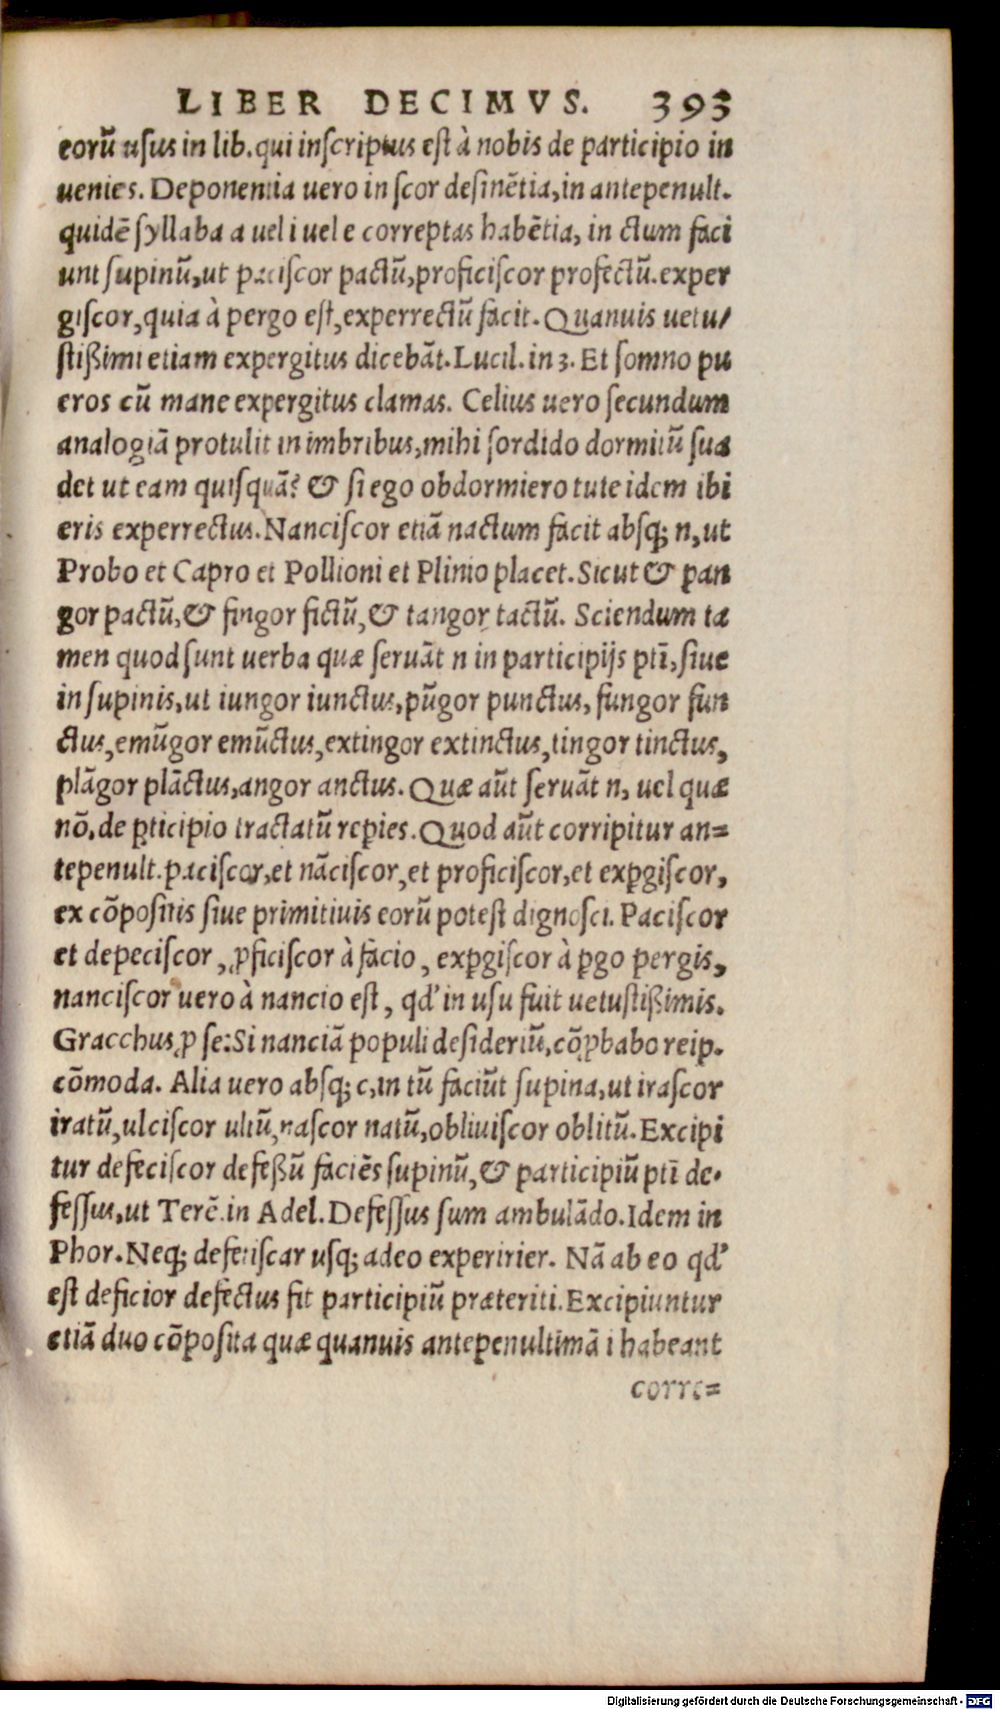 LIBER DECIMVS. 393
eorũ usus in lib. qui inscriptus est à nobis de participio in
uenies. Deponentia uero in scor desinẽtia, in antepenult.
quidẽ syllaba a uel i uel e correptas habẽtia, in ctum faci
unt supinũ, ut paciscor pactũ, proficiscor profectũ. exper
giscor, quia à pergo est, experrectũ facit. Quanuis uetu/
stißimi etiam expergitus dicebãt. Lucil. in 3. Et somno pu
eros cũ mane expergitus clamas. Celius uero secundum
analogiã protulit in imbribus, mihi sordido dormitũ sua
det ut eam quisquã? & si ego obdormiero tute idem ibi
eris experrectus. Nanciscor etiã nactum facit absq; n, ut
Probo et Capro et Pollioni et Plinio placet. Sicut & pan
gor pactũ, & fingor fictũ, & tangor tactũ. Sciendum ta
men quod sunt uerba quæ seruãt n in participijs ptĩ, siue
in supinis, ut iungor iunctus, pũgor punctus, fungor fun
ctus, emũgor emũctus, extingor extinctus, tingor tinctus,
plãgor plãctus, angor anctus. Quæ aũt seruãt n, uel quæ
nõ, de ꝑticipio tractatũ reꝑies. Quod aũt corripitur an=
tepenult. paciscor, et nãciscor, et proficiscor, et exꝑgiscor,
ex cõpositis siue primitiuis eorũ potest dignosci. Paciscor
et depeciscor, ꝓficiscor à facio, exꝑgiscor à ꝑgo pergis,
nanciscor uero à nancio est, qd' in usu fuit uetustißimis.
Gracchus ꝓ se: Si nanciã populi desideriũ, cõꝓbabo reip.
cõmoda. Alia uero absq; c, in tũ faciũt supina, ut irascor
iratũ, ulciscor ultũ, nascor natũ, obliuiscor oblitũ. Excipi
tur defeciscor defeßũ faciẽs supinũ, & participiũ ptĩ de-
fessus, ut Terẽ. in Adel. Defessus sum ambulãdo. Idem in
Phor. Neq; defetiscar usq; adeo experirier. Nã ab eo qd'
est deficior defectus fit participiũ præteriti. Excipiuntur
etiã duo cõposita quæ quanuis antepenultimã i habeant
corre=
Digitalisierung gefördert durch die Deutsche Forschungsgemeinschaft - DFG